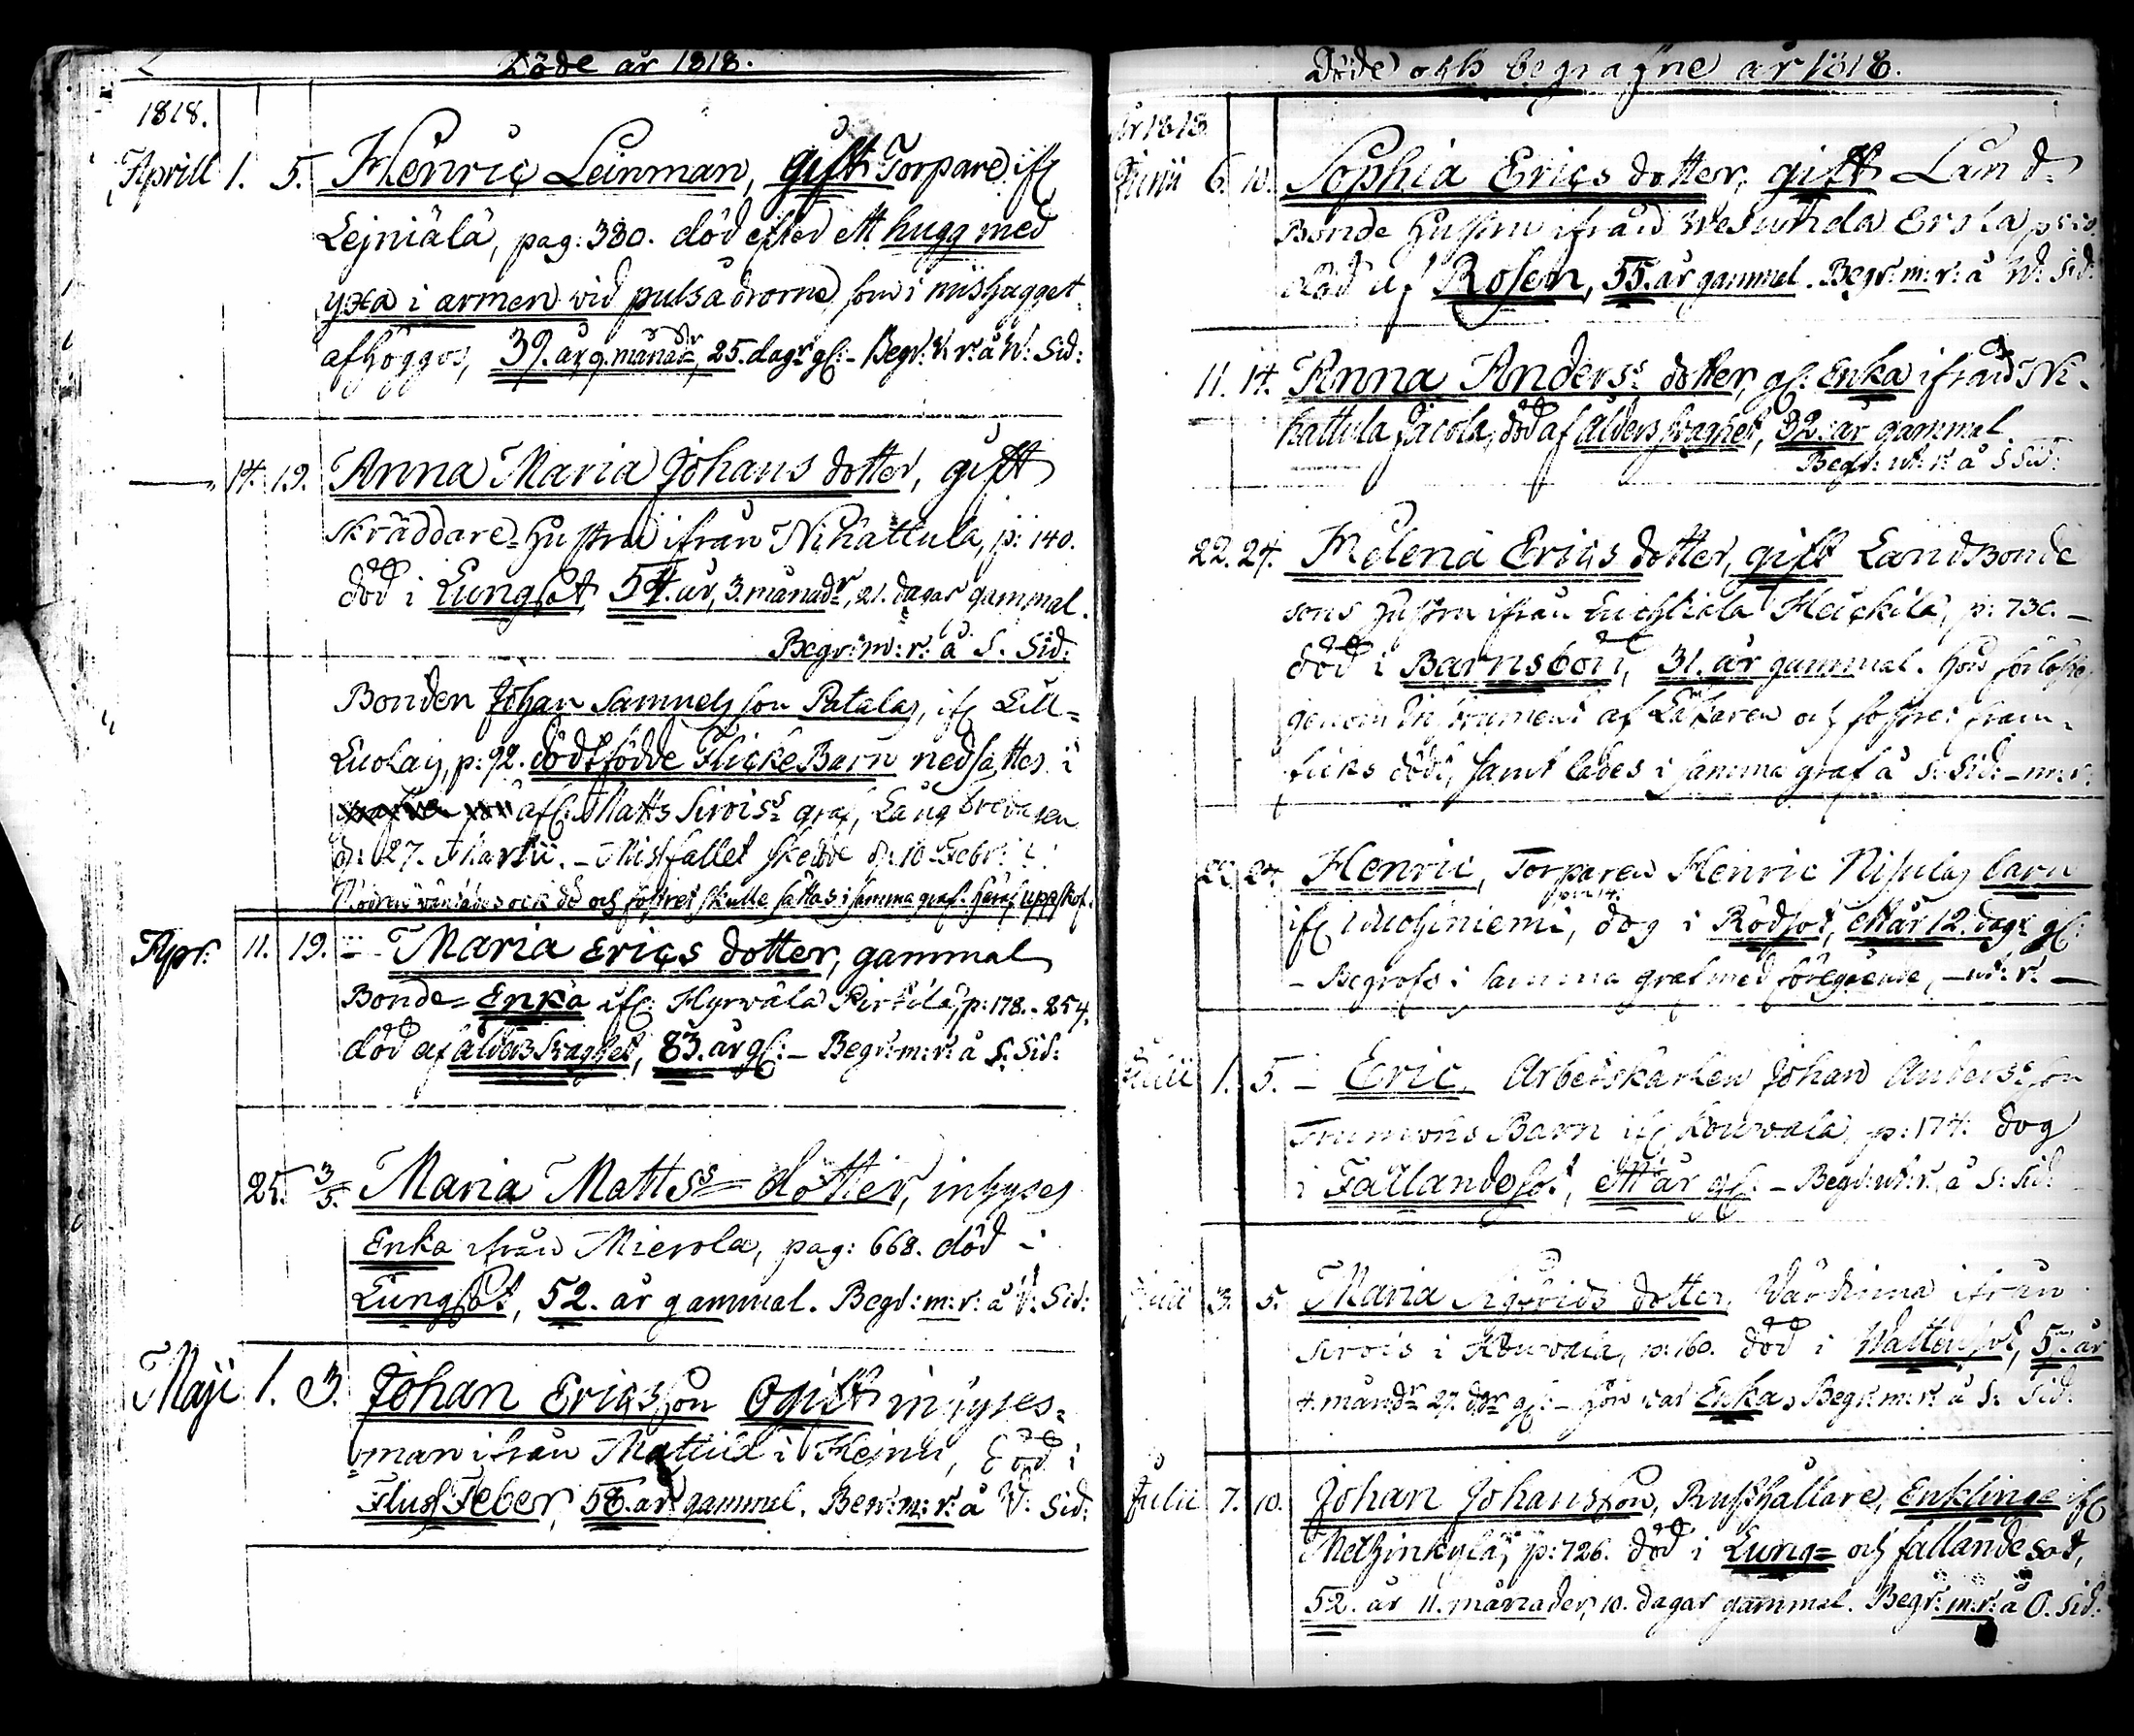 Döde år 1818.
1818.
Aprill 1. 5. Henric Leinman, gift Torpare ifr
Lejniälä, pag: 380. död efter ett hugg med
yxa i armen wid pulsådrorne, som i misshugget
afhöggos, 39. år, 9. månadr, 25. dagr gl: - Begr: v. r: å W: Sid:
14. 19. Anna Maria Johans dotter, gift
Skräddare-Hustru ifrån Nihattula, p: 140.
död i Lungsot, 54. år, 3. månadr, 21. dagar gammal.
Begr: m: r: å S. Sid:
Bonden Johan Samuelsson Patalas, ifr Lill-
Luolais, p: 92. dödfödde FlickeBarn nedsattes i
afl: Matts Sirois graf, Lång
d: 27. Martii. - Missfallet skedde d: 10 Febr:
Modren wäntades ock dö och fostret skulle sättas i samma graf. häraf uppskof.
Apr: 11. 19. - Maria Erics dotter, gammal
Bonde-Enka ifr: Hyrvälä Pirkilä, p: 178. - 254.
död af ålders svaghet, 83. år gl: - Begr: m: r: å S: Sid:
25. 3/5. Maria Matts dotter, inhyses
Enka ifrån Mierola, pag: 668. död i
Lungsot, 52. år gammal. Begr: m: r: å V: Sid:
Maji 1. 3. Johan Ericsson Ogift inhyses-
man ifrån Mattila i Hejnu, död i
FlussFeber, 58. år gammal. Begr: m: r: å W: Sid:
Döde och begrafne år 1818.
År 1818
Junii 6. 10. Sophia Erics dotter, gift Land-
Bonde Hustru ifrån Wesunda Ersla
död af Rosen, 55. år gammal. Begr: m: r: å W: Sid:
11. 14. Anna Anders dotter, gl: Enka ifrån Ni-
hattula Jacola, död af ålders svaghet, 92. år gammal
Begr: w: r: å S Sid:
22. 24. Helena Erics dotter, gift LandBonde
sons Hustru ifrån Luhtiala Heickilä, p: 730. -
död i Barnsbörd, 31. år gammal. Hon förlöstes
genom Instrument af Läkaren och fostret fram-
ficks dödt, samt lades i samma graf å S: Sid: - m: r:
22. 24. Henric, Torparen Henric Nisulas barn
ifr Wuohiniemi, dog i Rödsot, ett år 12. dagr gl:
- Begrofs i samma graf med föregående, - w: r: -
Julii 1. 5. - Eric, Arbetskarlen Johan Andersson
Barn ifr Kouvala, p: 174. dog
i Fallandesot, ett år gl: - Begr: w: r: å S: Sid:
Julii 3. 5. Maria Sigfrids dotter, Wärdinna ifrån
Sirois i Kouvala, p: 160. död i Wattusot, 57. år
4. månadr 27. dgr gl: - Hon var Enka, Begr: m: r: å S: Sid:
Julii 7. 10. Johan Johansson, Rusthållare, Enklinge ifr
Metzinkylä, p: 726. död i Lung- och fallande sot,
52. år 11. månader, 10. dagar gammal. Begr: m: r: å O. Sid: